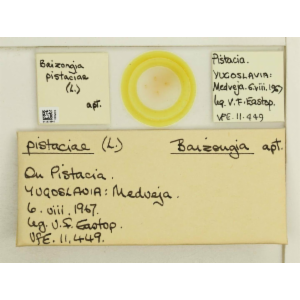 Baizongia
pistaciae
(L.)
apt.
Pistacia.
YUGOSLAVIA:
Medveja. 6.viii.1967
leg. V.F. Eastop.
VFE. 11.449
pistaciae (L.) Baizongia apt.
On Pistacia.
YUGOSLAVIA: Medveja.
6. viii. 1967.
leg. V.F. Eastop.
VFE. 11.449.